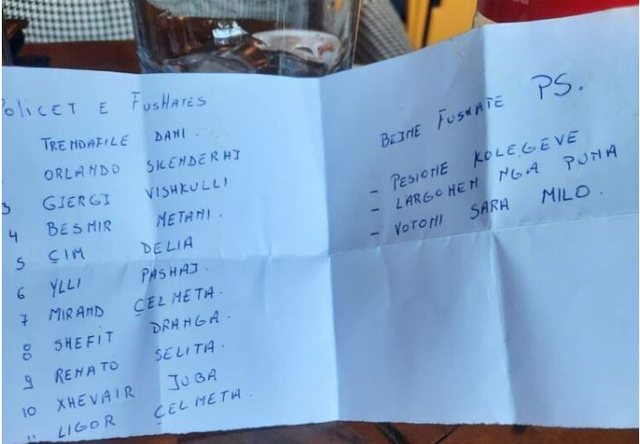 POLICET E FUSHATES
TRENDAFILE DANI.
ORLANDO SKENDERAJ
3 GJERGJ VISHKULLI
4 BESMIR METANI.
5 ÇIM DELIA
6 YLLI PASHAJ.
7 MIRAND ÇELMETA.
8 SHEFIT DRANGA.
9 RENATO SELITA.
10 XHEVAIR JUBA
11 LIGOR ÇELMETA.
BEJNE FUSHATE PS.
- PESIONE KOLEGEVE
- LARGOHEN NGA PUNA
- VOTONI SARA MILO.